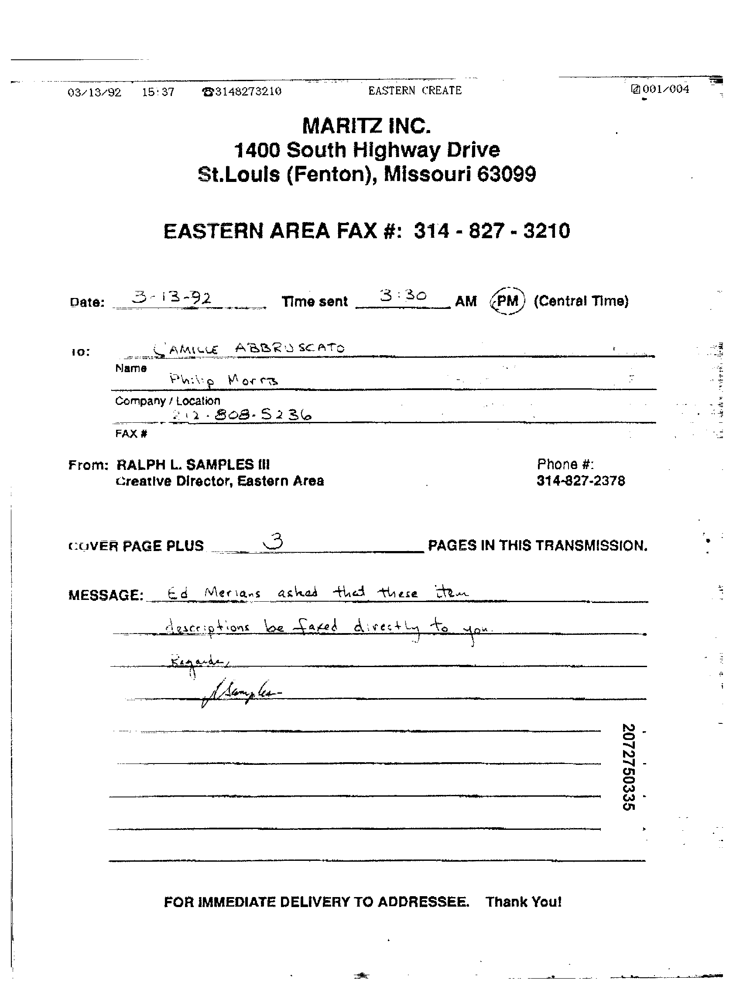 03/13/92 15:37 ☎3148273210 EASTERN CREATE 001/004
MARITZ INC.
1400 South Highway Drive
St.Louis (Fenton), Missouri 63099
EASTERN AREA FAX #: 314 - 827 - 3210
Date: 3-13-92 Time sent 3:30 AM PM (Central Time)
To: CAMILLE ABBRUSCATO
Name
Philip Morris
Company / Location
212-808-5236
FAX #
From: RALPH L. SAMPLES III Phone #:
Creative Director, Eastern Area 314-827-2378
COVER PAGE PLUS 3 PAGES IN THIS TRANSMISSION.
MESSAGE: Ed Merians asked that these item
descriptions be faxed directly to you.
Regards,
R Samples
2072750335
FOR IMMEDIATE DELIVERY TO ADDRESSEE. Thank You!